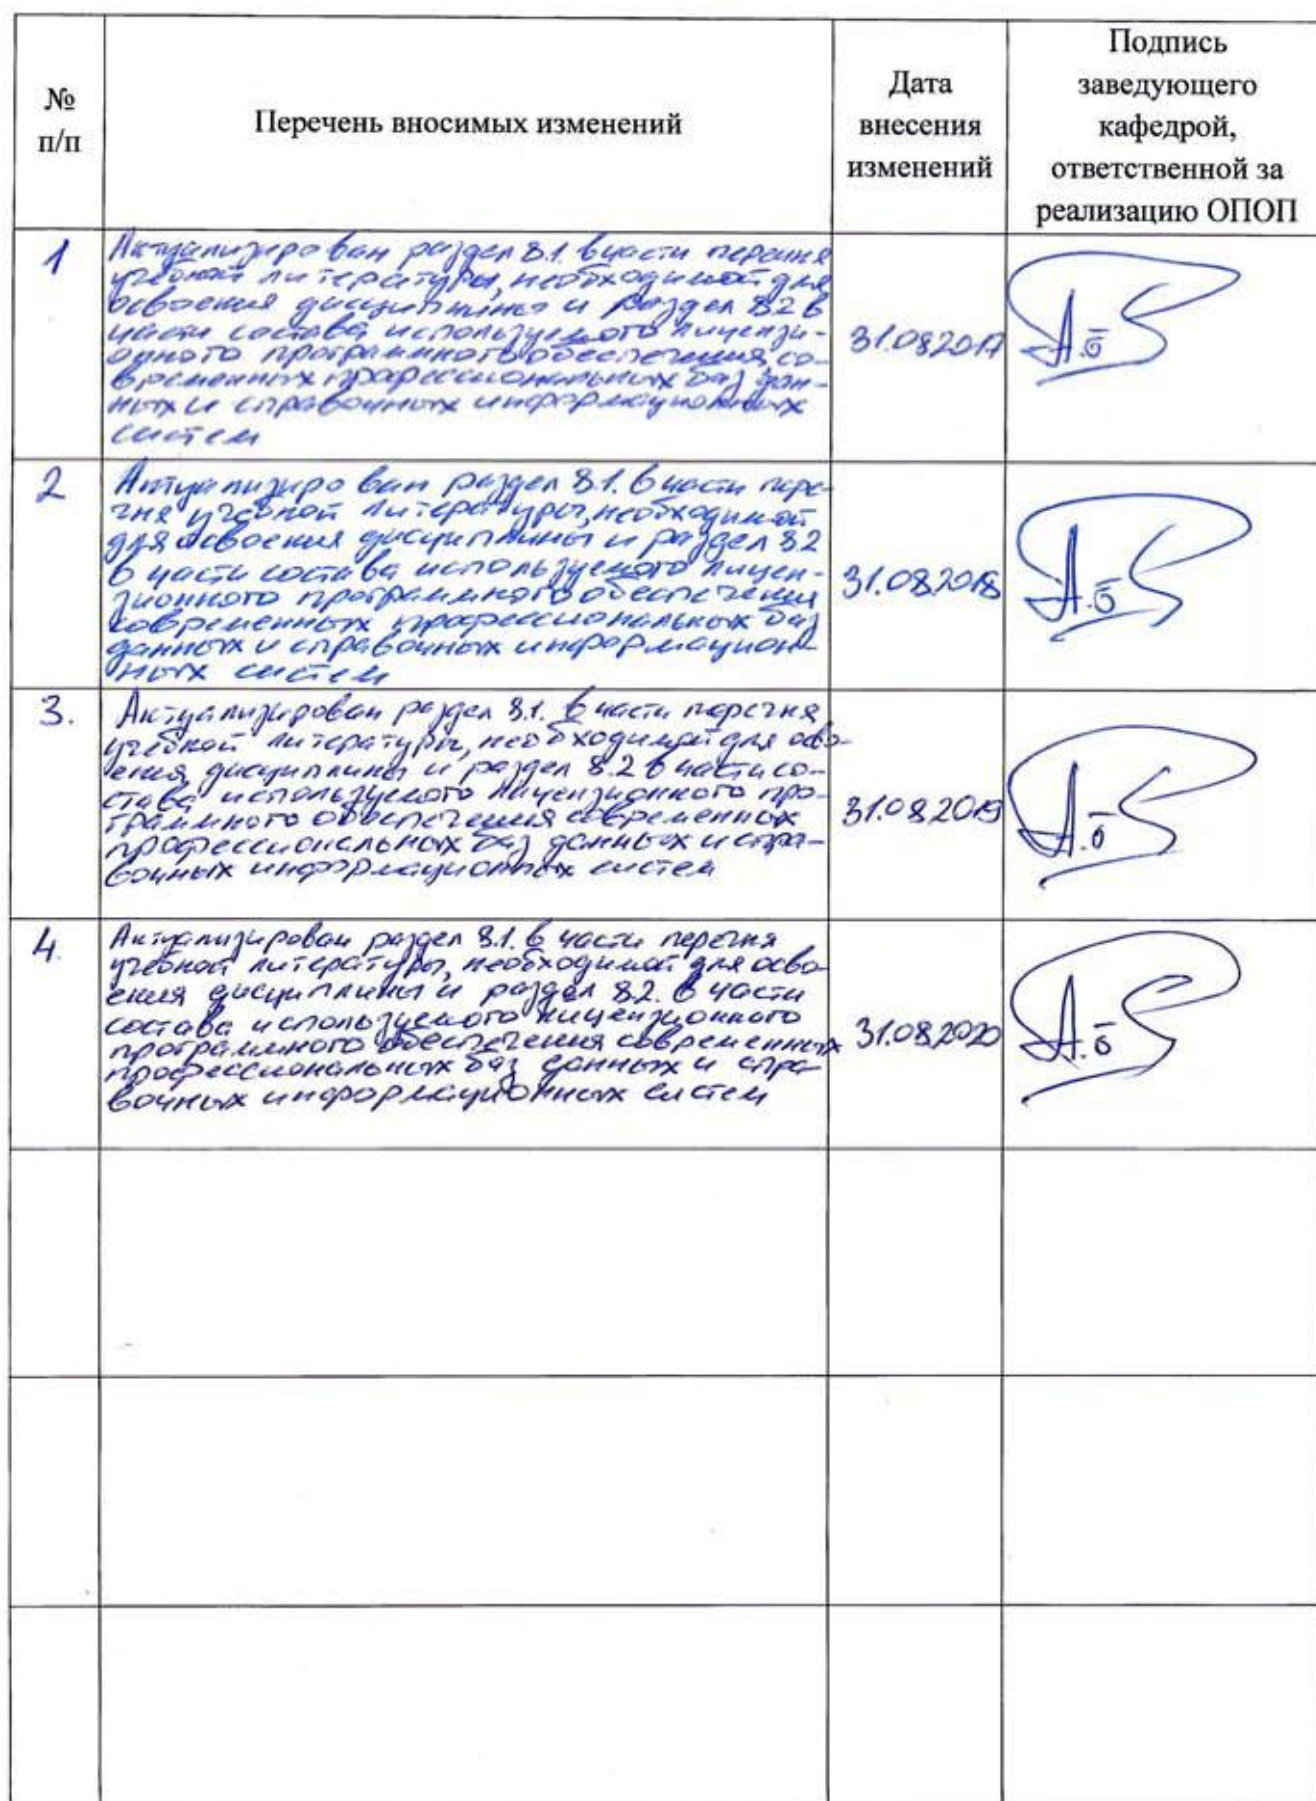 №
п/п
Перечень вносимых изменений
Дата
внесения
изменений
Подпись
заведующего
кафедрой,
ответственной за
реализацию ОПОП
1
Актуализирован раздел 8.1. в части перечня
учебной литературы, необходимой для
освоения дисциплины и раздел 8.2 в
части состава используемого лицензи-
онного программного обеспечения, со-
временных профессиональных баз дан-
ных и справочных информационных
систем
31.08.2017
А.Б
2
Актуализирован раздел 8.1. в части пере-
чня учебной литературы, необходимой
для освоения дисциплины и раздел 8.2
в части состава используемого лицен-
зионного программного обеспечения
современных профессиональных баз
данных и справочных информацион-
ных систем
31.08.2018
А.Б
3.
Актуализирован раздел 8.1. в части перечня
учебной литературы, необходимой для осво-
ения дисциплины и раздел 8.2 в части со-
става используемого лицензионного про-
граммного обеспечения современных
профессиональных баз данных и спра-
вочных информационных систем
31.08.2019
А.Б
4.
Актуализирован раздел 8.1. в части перечня
учебной литературы, необходимой для осво-
ения дисциплины и раздел 8.2. в части
состава используемого лицензионного
программного обеспечения современных
профессиональных баз данных и спра-
вочных информационных систем
31.08.2020
А.Б